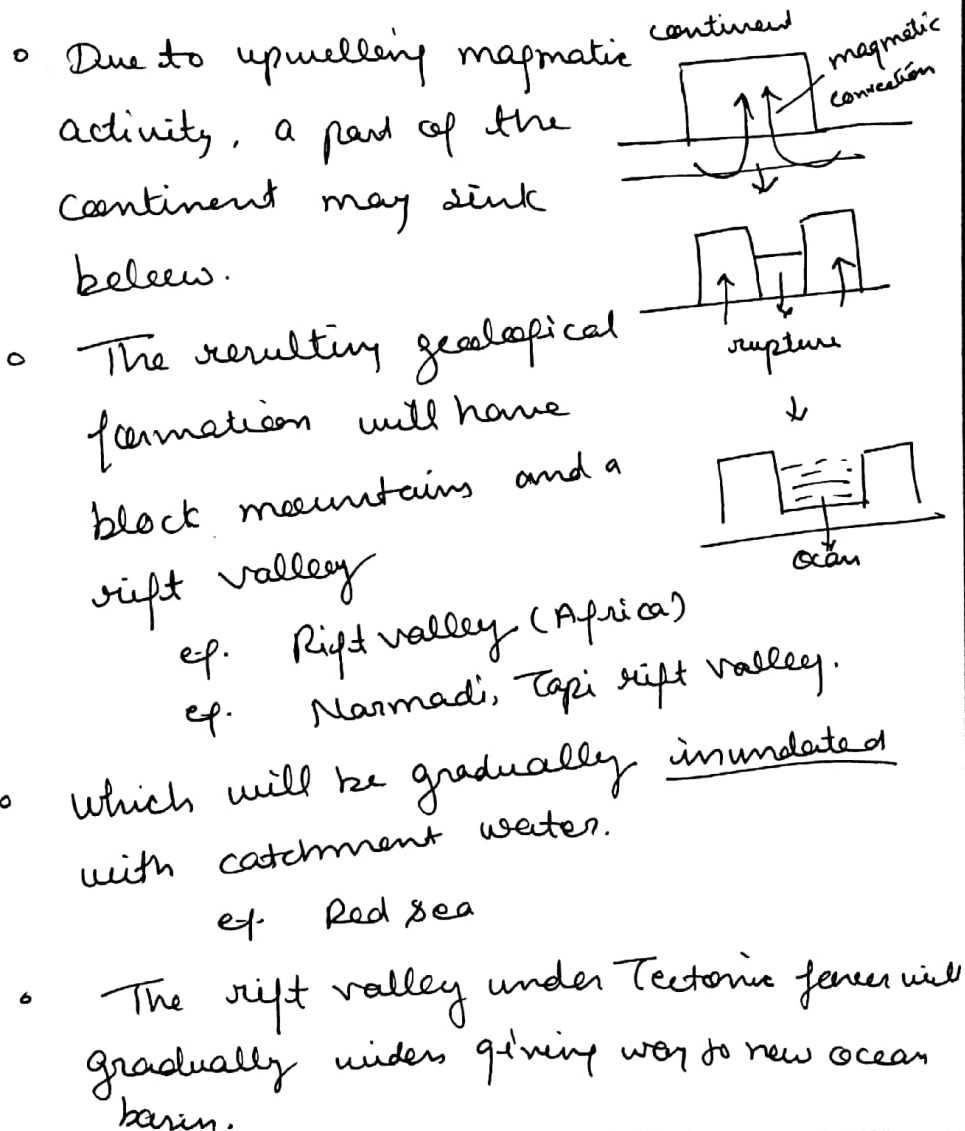 • Due to upwelling magmatic
activity, a part of the
continent may sink
below.
continent
magmatic
convection
rupture
ocean
• The resulting geological
formation will have
block mountains and a
rift valley
eg. Rift valley (Africa)
eg. Narmadi, Tapi rift valley.
• which will be gradually inundated
with catchment water.
eg. Red sea
• The rift valley under Tectonic forces will
gradually widen giving way to new ocean
basin.